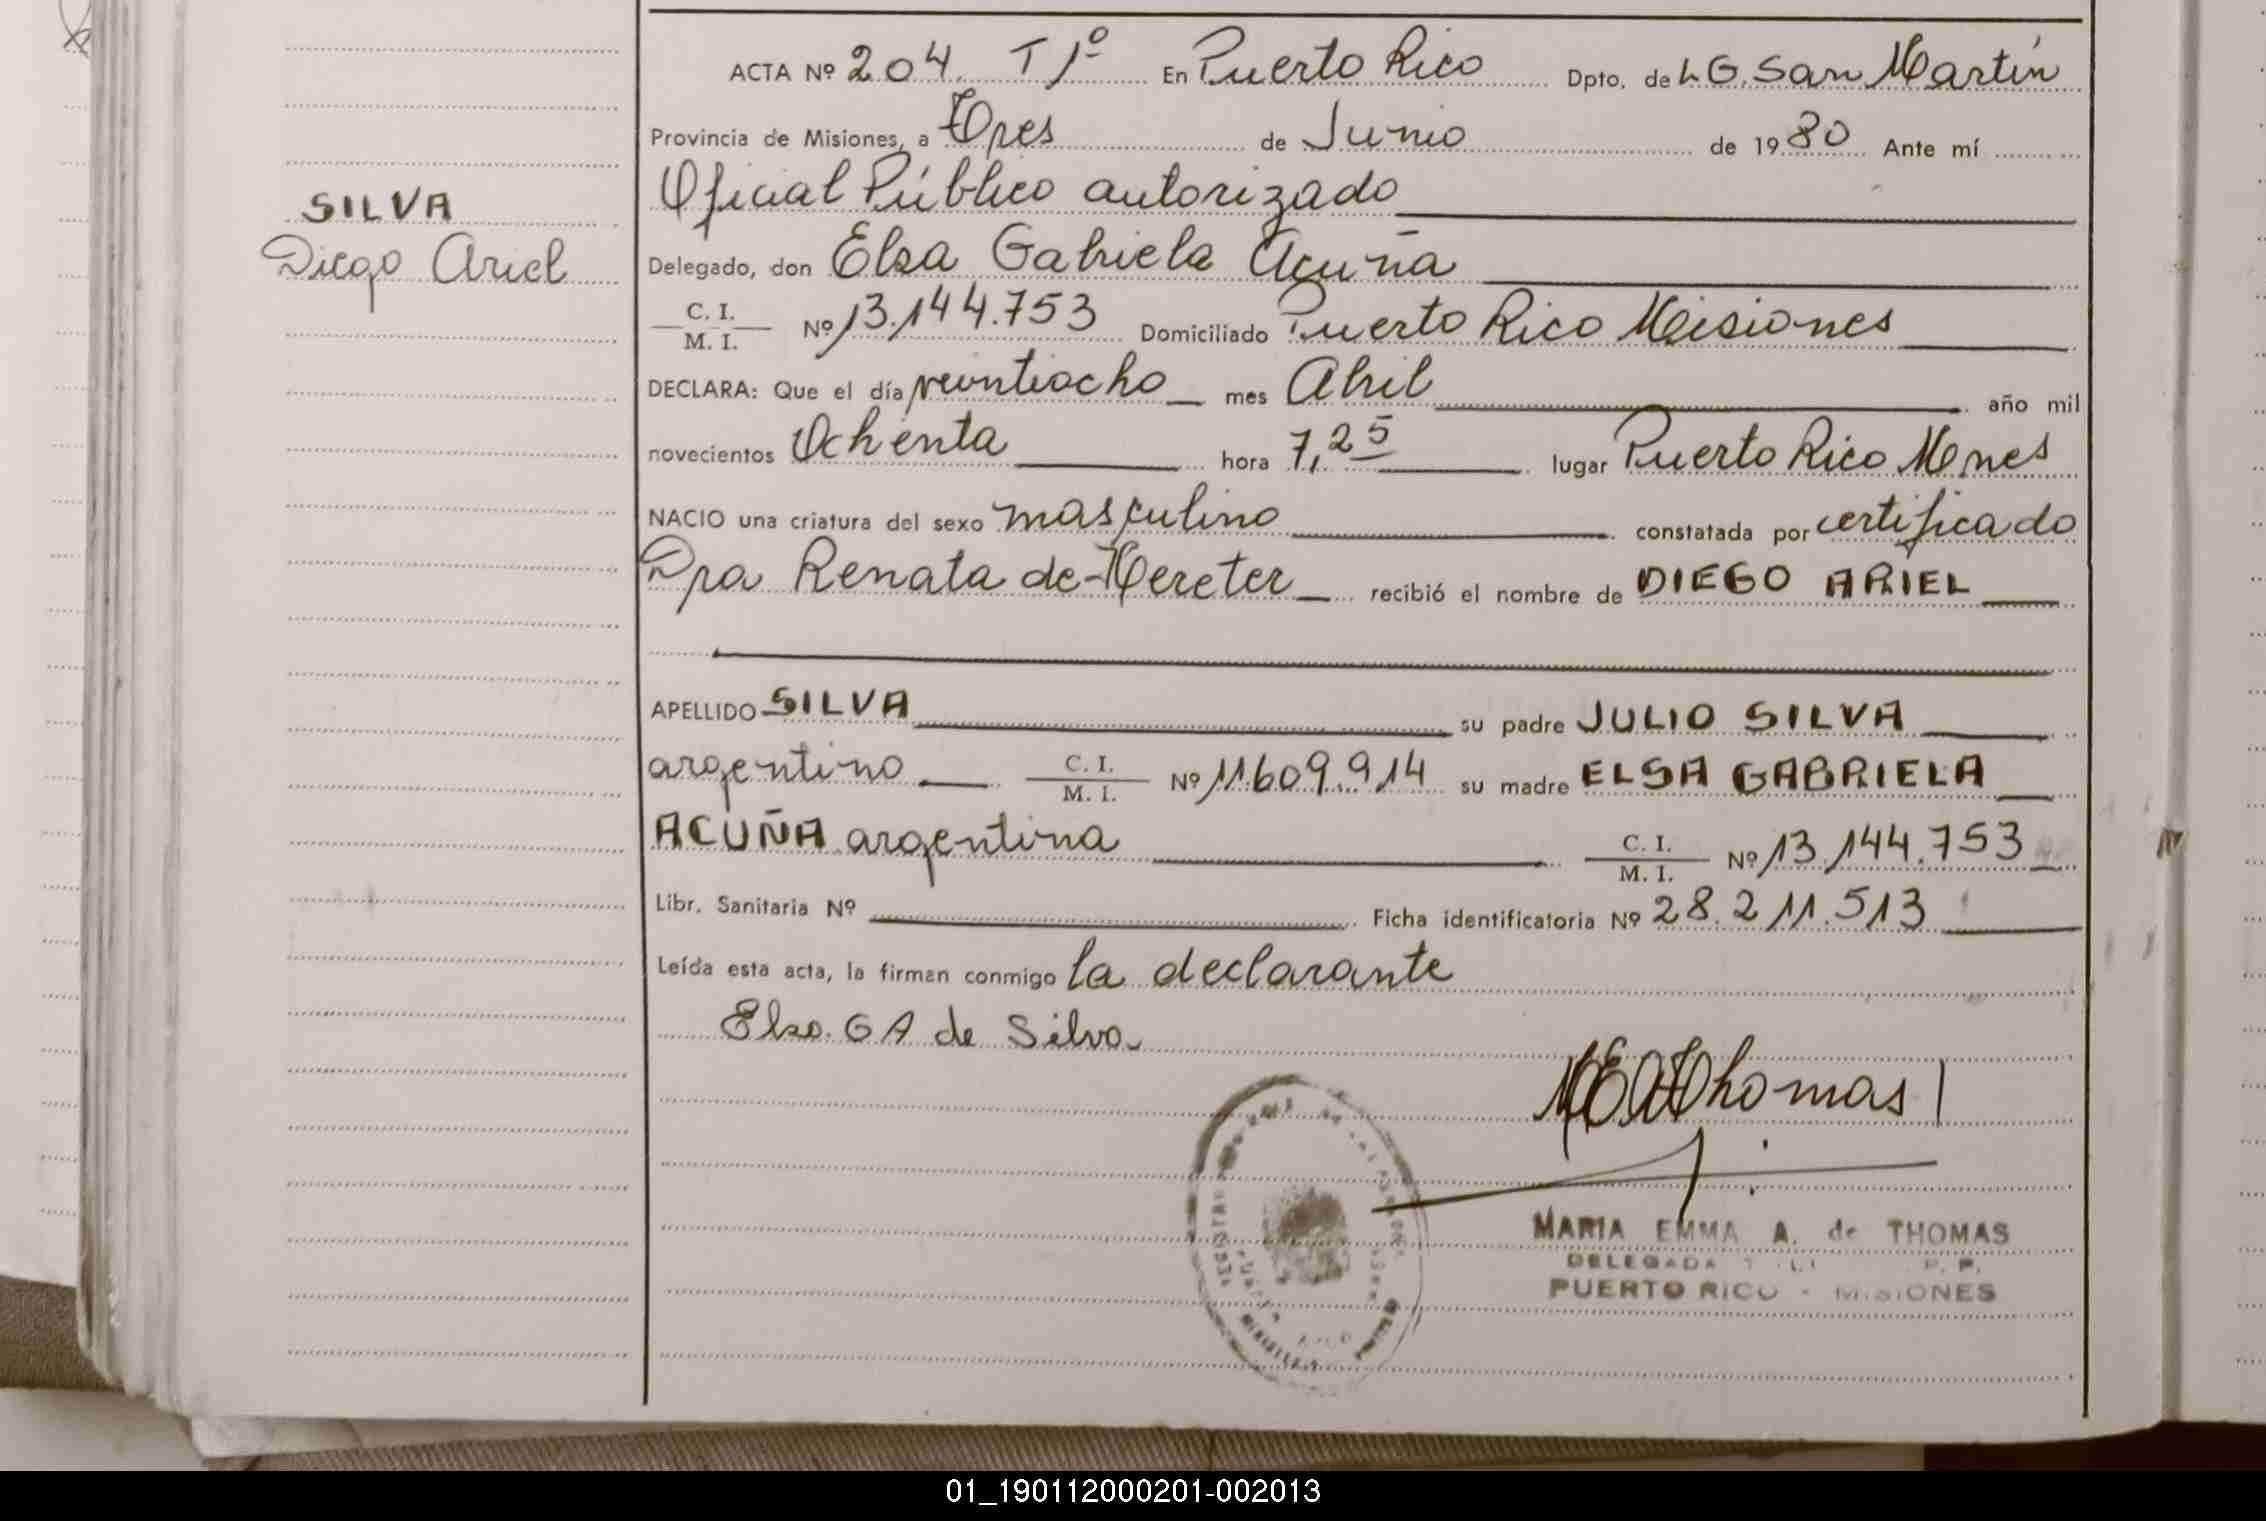 ACTA Nº 204 T 1º En Puerto Rico Dpto. de L G. San Martín
Provincia de Misiones, a Tres de Junio de 1980 Ante mí
SILVA
Diego Ariel
Oficial Público autorizado
Delegado, don Elsa Gabriela Acuña
C. I.
M. I. Nº 13.144.753 Domiciliado Puerto Rico Misiones
DECLARA: Que el día veintiocho mes Abril año mil
novecientos Ochenta hora 7,25 lugar Puerto Rico Mnes
NACIO una criatura del sexo masculino constatada por certificado
Dra Renata de Mereter recibió el nombre de DIEGO ARIEL
APELLIDO SILVA su padre JULIO SILVA
argentino C. I. M. I. Nº 11.609.914 su madre ELSA GABRIELA
ACUÑA argentina C. I. M. I. Nº 13.144.753
Libr. Sanitaria Nº Ficha identificatoria Nº 28.211.513
Leída esta acta, la firman conmigo la declarante
Elsa G A de Silva
M E A Thomas
MARIA EMMA A. de THOMAS
DELEGADA
PUERTO RICO - MISIONES
01_190112000201-002013